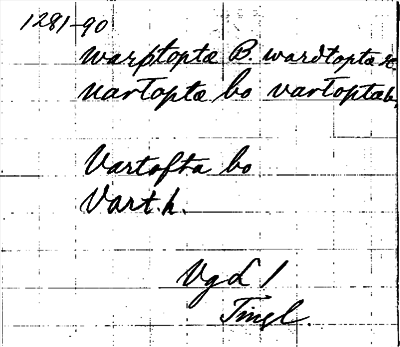 1281-90
warptoptæ B. wardtoptæ k.
uartoptæ bo vartoptæb,
Vartofta bo
Vart.h.
Vgd 1
Tingl.